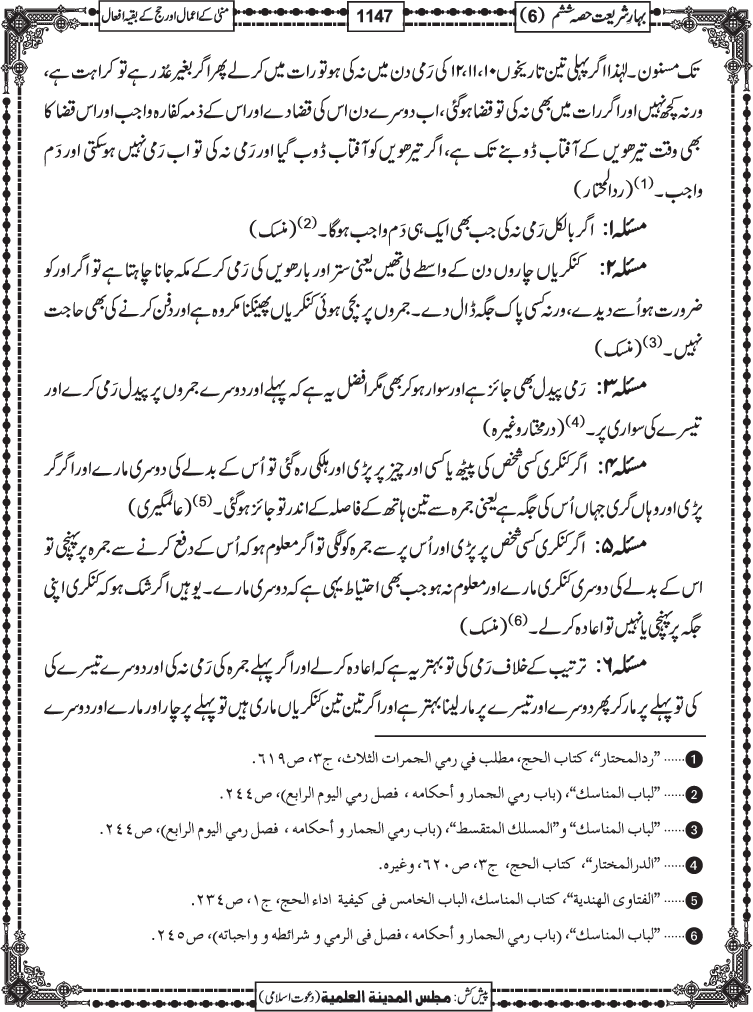 بہارِ شریعت حصہ ششم (6)
1147
منیٰ کے اعمال اور حج کے بقیہ افعال
تک مسنون۔ لہٰذا اگر پہلی تین تاریخوں ۱۰، ۱۱، ۱۲ کی رَمی دن میں نہ کی ہو تو رات میں کرلے پھر اگر بغیر عُذر ہے تو کراہت ہے،
ورنہ کچھ نہیں اور اگر رات میں بھی نہ کی تو قضا ہوگئی، اب دوسرے دن اس کی قضا دے اور اس کے ذمہ کفارہ واجب اور اس قضا کا
بھی وقت تیرھویں کے آفتاب ڈوبنے تک ہے، اگر تیرھویں کو آفتاب ڈوب گیا اور رَمی نہ کی تو اب رَمی نہیں ہوسکتی اور دَم
واجب۔ (1) (ردالمحتار)
مسئلہ ۱: اگر بالکل رَمی نہ کی جب بھی ایک ہی دَم واجب ہوگا۔ (2) (منسک)
مسئلہ ۲: کنکریاں چاروں دن کے واسطے لی تھیں یعنی ستر اور بارھویں کی رَمی کرکے مکہ جانا چاہتا ہے تو اگر اور کو
ضرورت ہو اُسے دیدے، ورنہ کسی پاک جگہ ڈال دے۔ جمروں پر بچی ہوئی کنکریاں پھینکنا مکروہ ہے اور دفن کرنے کی بھی حاجت
نہیں۔ (3) (منسک)
مسئلہ ۳: رَمی پیدل بھی جائز ہے اور سوار ہو کر بھی مگر افضل یہ ہے کہ پہلے اور دوسرے جمروں پر پیدل رَمی کرے اور
تیسرے کی سواری پر۔ (4) (درمختار وغیرہ)
مسئلہ ۴: اگر کنکری کسی شخص کی پیٹھ یا کسی اور چیز پر پڑی اور ہلکی رہ گئی تو اُس کے بدلے کی دوسری مارے اور اگر گر
پڑی اور وہاں گری جہاں اُس کی جگہ ہے یعنی جمرہ سے تین ہاتھ کے فاصلہ کے اندر تو جائز ہوگئی۔ (5) (عالمگیری)
مسئلہ ۵: اگر کنکری کسی شخص پر پڑی اور اُس پر سے جمرہ کو لگی تو اگر معلوم ہو کہ اُس کے دفع کرنے سے جمرہ پر پہنچی تو
اس کے بدلے کی دوسری کنکری مارے اور معلوم نہ ہو جب بھی احتیاط یہی ہے کہ دوسری مارے۔ یوہیں اگر شک ہو کہ کنکری اپنی
جگہ پر پہنچی یا نہیں تو اعادہ کرلے۔ (6) (منسک)
مسئلہ ۶: ترتیب کے خلاف رَمی کی تو بہتر یہ ہے کہ اعادہ کرلے اور اگر پہلے جمرہ کی رَمی نہ کی اور دوسرے تیسرے کی
کی تو پہلے پر مار کر پھر دوسرے اور تیسرے پر مار لینا بہتر ہے اور اگر تین تین کنکریاں ماری ہیں تو پہلے پر چار اور مارے اور دوسرے
1 ...... ”ردالمحتار“، کتاب الحج، مطلب في رمي الجمرات الثلاث، ج۳، ص٦١٩.
2 ...... ”لباب المناسك“، (باب رمي الجمار و أحكامه ، فصل رمي اليوم الرابع)، ص٢٤٤.
3 ...... ”لباب المناسك“ و”المسلك المتقسط“، (باب رمي الجمار و أحكامه ، فصل رمي اليوم الرابع)، ص٢٤٤.
4 ...... ”الدرالمختار“، كتاب الحج، ج٣، ص٦٢٠، وغيره.
5 ...... ”الفتاوى الهندية“، كتاب المناسك، الباب الخامس فى كيفية اداء الحج، ج١، ص٢٣٤.
6 ...... ”لباب المناسك“، (باب رمي الجمار و أحكامه ، فصل فى الرمي و شرائطه و واجباته)، ص٢٤٥.
پیش کش: مجلس المدينة العلمية (دعوتِ اسلامی)